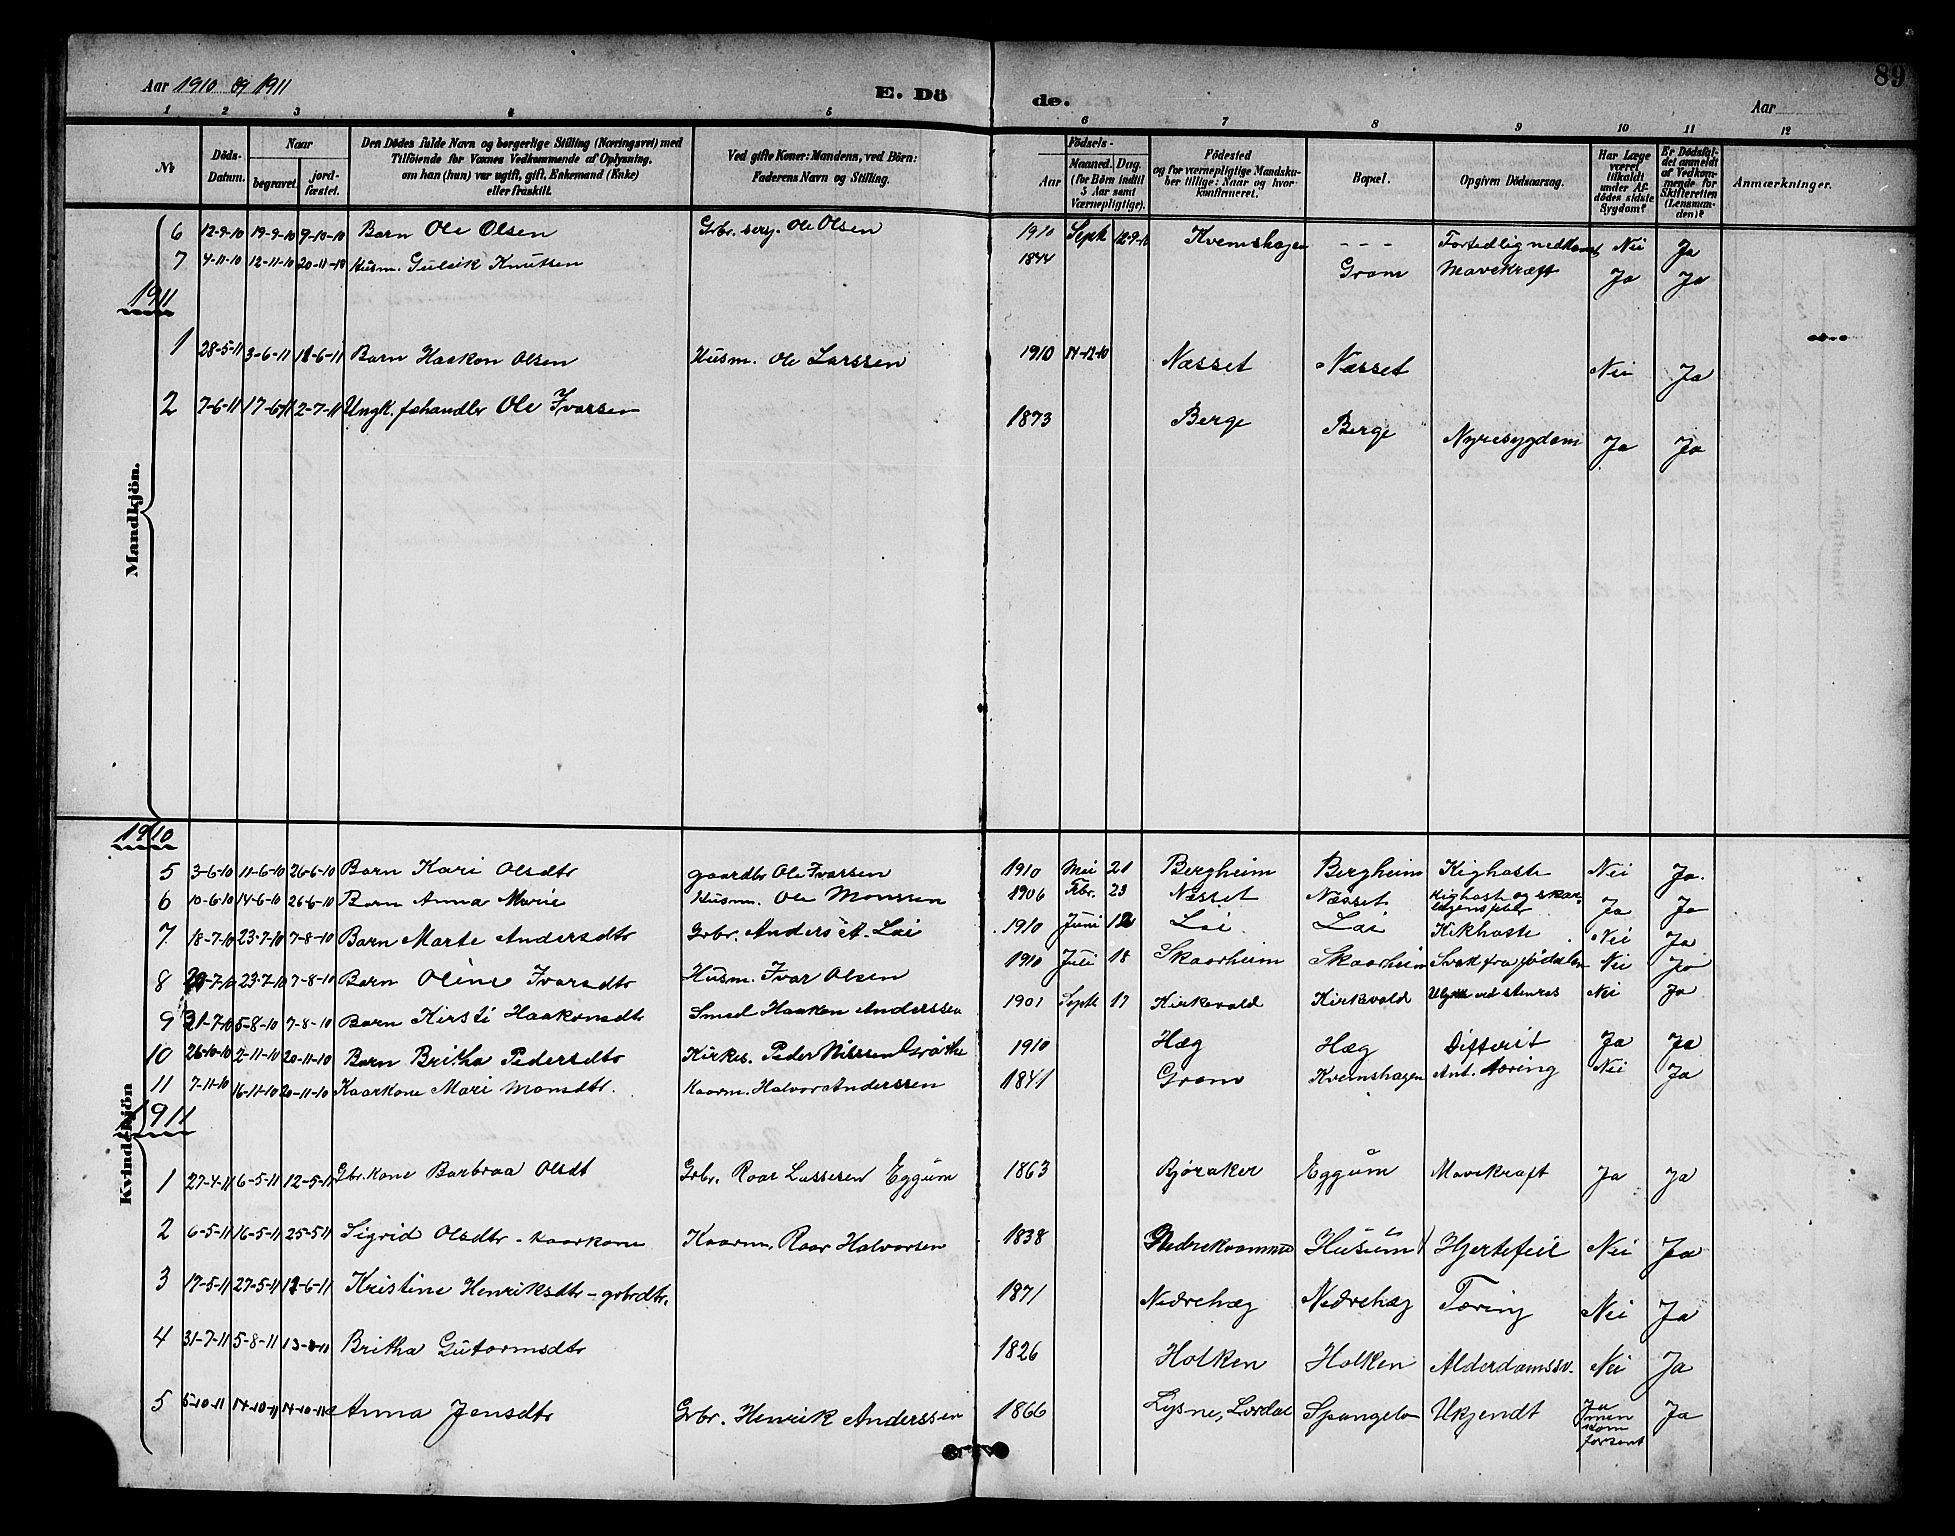 89
Aar 1910 og 1911
E. Dö de.
Aar
1 2 3 4 5 6 7 8 9 10 11 12
№ Döds-Datum. Naar begravet. jord-fæstet. Den Dödes fulde Navn og borgerlige Stilling (Næringsvei) med Tilföiende for Voxnes Vedkommende af Oplysning, om han (hun) var ugift, gift, Enkemand (Enke) eller fraskilt. Ved gifte Koner: Mandens, ved Börn: Faderens Navn og Stilling. Födsels- Aar Maaned. Dag. (for Börn indtil 5 Aar samt Værnepligtige). Födested og for værnepligtige Mandskaber tillige: Naar og hvor konfirmeret. Bopæl. Opgiven Dödsaarsag. Har Læge været tilkaldt under Afdödes sidste Sygdom? Er Dödsfaldet anmeldt af Vedkommende for Skifteretten (Lensmanden)? Anmærkninger.
Mandkjön.
6 12-9-10 19-9-10 9-10-10 Barn Ole Olsen Grbr. serg. Ole Olsen 1910 Septr 12-9-10 Kvemshagen - - - Fortidlig nedkomst Nei Ja
7 4-11-10 12-11-10 20-11-10 Husm. Gulsik Knutsen 1844 Gram Mavekræft Ja Ja
1911
1 28-5-11 3-6-11 11-6-11 Barn Haakon Olsen Husm. Ole Larssen 1910 14-12-10 Næsset Næsset Nei Ja
2 7-6-11 17-6-11 2-7-11 Ungk. fæhandler Ole Ivarsen 1873 Berge Berge Nyresygdom Ja Ja
Kvindekjön
1910
5 3-6-10 11-6-10 26-6-10 Barn Kari Olsdtr gaardbr Ole Ivarsen 1910 Mai 21 Bergheim Bergheim Kighoste Nei Ja.
6 10-6-10 14-6-10 26-6-10 Barn Anna Marie Husm. Ole Monssen 1906 Febr. 23 Næsset Næsset Kighoste og skarlagensfeber Ja Ja
7 18-7-10 23-7-10 7-8-10 Barn Marte Andersdtr Grbr. Anders A. Lai 1910 Juni 12 Lai Lai Kikhoste Nei Ja
8 20-7-10 23-7-10 7-8-10 Barn Oline Ivarsdtr Husm. Ivar Olsen 1910 Juli 18 Skaarheim Skaarheim Svak fra födselen Nei Ja
9 31-7-10 5-8-10 7-8-10 Barn Kirsti Haakonsdtr Smed Haaken Anderssen 1901 Septr 17 Kirkevold Kirkevold Ulykke ved stenras Nei Ja
10 26-10-10 2-11-10 20-11-10 Barn Britha Pedersdtr Kirkes. Peder Nilssen Gröthe 1910 Hæg Hæg Difterit Ja Ja
11 7-11-10 16-11-10 20-11-10 Kaarkone Mari Monsdtr. Kaarm. Halvor Anderssen 1841 Gram Kvemshagen Ant. tæring Nei Ja
1911
1 27-4-11 6-5-11 12-5-11 Gbr.kone Barbraa Olsdt Grbr. Roar Lassesen Eggum 1863 Bjøraker Eggum Mavekræft Ja Ja
2 6-5-11 16-5-11 25-5-11 Sigrid Olsdtr - kaarkone Kaarm. Roar Halvorsen 1838 Nedrekvamme Husum Hjertefeil Nei Ja
3 17-5-11 27-5-11 11-6-11 Kristine Henriksdtr - grbrdtr. 1871 Nedrehæg Nedrehæg Tæring Nei Ja
4 31-7-11 5-8-11 13-8-11 Britha Gutormsdtr 1826 Holken Holken Alderdomssv. Nei Ja
5 5-10-11 14-10-11 14-10-11 Anna Jensdtr Grbr. Henrik Anderssen 1866 Lysne, Lærdal Spangelo Ukjendt Ja men kom forsent Ja